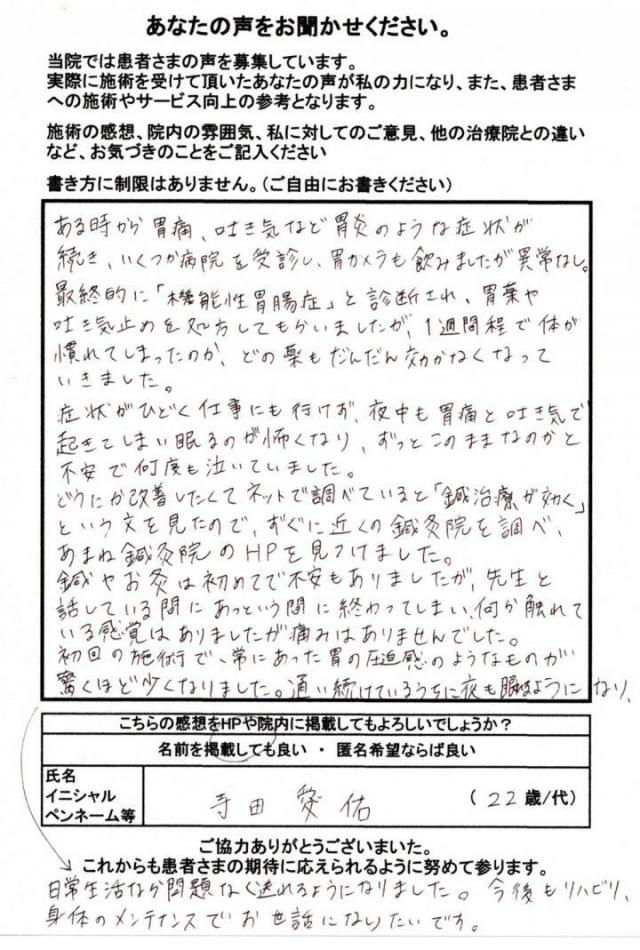 あなたの声をお聞かせください。
当院では患者さまの声を募集しています。
実際に施術を受けて頂いたあなたの声が私の力になり、また、患者さま
への施術やサービス向上の参考となります。
施術の感想、院内の雰囲気、私に対してのご意見、他の治療院との違い
など、お気づきのことをご記入ください
書き方に制限はありません。（ご自由にお書きください）
ある時から胃痛、吐き気など胃炎のような症状が
続き、いくつか病院を受診し、胃カメラも飲みましたが異常なし。
最終的に「機能性胃腸症」と診断され、胃薬や
吐き気止めを処方してもらいましたが、1週間程で体が
慣れてしまったのか、どの薬もだんだん効かなくなって
いきました。
症状がひどく仕事にも行けず、夜中も胃痛と吐き気で
起きてしまい眠るのが怖くなり、ずっとこのままなのかと
不安で何度も泣いていました。
どうにか改善したくてネットで調べていると「鍼治療が効く」
という文を見たので、すぐに近くの鍼灸院を調べ、
あまね鍼灸院のHPを見つけました。
鍼やお灸は初めてで不安もありましたが、先生と
話している間にあっという間に終わってしまい、何か触れて
いる感覚はありましたが痛みはありませんでした。
初回の施術で、常にあった胃の圧迫感のようなものが
驚くほど少くなりました。通い続けているうちに夜も眠るようになり、
こちらの感想をHPや院内に掲載してもよろしいでしょうか？
名前を掲載しても良い ・ 匿名希望ならば良い
氏名
イニシャル
ペンネーム等
寺田 愛佑
（22歳/代）
ご協力ありがとうございまいた。
これからも患者さまの期待に応えられるように努めて参ります。
日常生活なが問題なく送れるようになりました。今後もリハビリ、
身体のメンテナンスでお世話になりたいです。